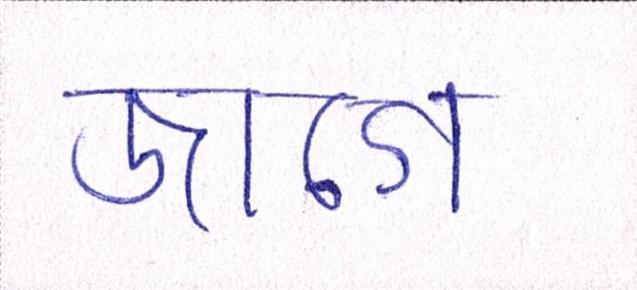 জাগে